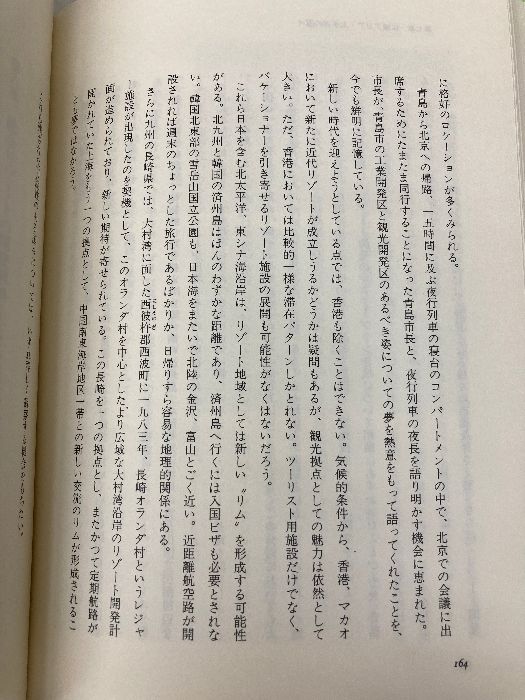 に格好のロケーションが多くみられる。
青島から北京への帰路、一五時間に及ぶ夜行列車の寝台のコンパートメントの中で、北京での会議に出
席するためにたまたま同行することになった青島市長と、夜行列車の夜長を語り明かす機会に恵まれた。
市長が、青島市の工業開発区と観光開発区のあるべき姿についての夢を熱意をもって語ってくれたことを、
今でも鮮明に記憶している。
新しい時代を迎えようとしている点では、香港も除くことはできない。気候的条件から、香港、マカオ
において新たに近代リゾートが成立しうるかどうかは疑問もあるが、観光拠点としての魅力は依然として
大きい。ただ、香港においては比較的一様な滞在パターンしかとれない。ツーリスト用施設だけでなく、
バケーショナーを引き寄せるリゾート施設の展開も可能性がなくはないだろう。
これら日本を含む北太平洋、東シナ海沿岸は、リゾート地域としては新しい〝リム〟を形成する可能性
がある。北九州と韓国の済州島はほんのわずかな距離であり、済州島へ行くには入国ビザも必要とされな
い。韓国北東部の雪岳山国立公園も、日本海をまたいで北陸の金沢、富山とごく近い。近距離航空路が開
設されれば週末のちょっとした旅行であるばかりか、日帰りすら容易な地理的関係にある。
さらに九州の長崎県では、大村湾に面した西彼杵郡西波町に一九八三年、長崎オランダ村というレジャ
ー施設が出現したのを契機として、このオランダ村を中心としたより広域な大村湾沿岸のリゾート開発計
画が進められており、新しい期待が寄せられている。この長崎を一つの拠点とし、またかつて定期航路が
開かれていた上海をもう一つの拠点として、中国南東海岸地区一帯との新しい交流のリムが形成されるこ
とも夢ではなかろう。
164